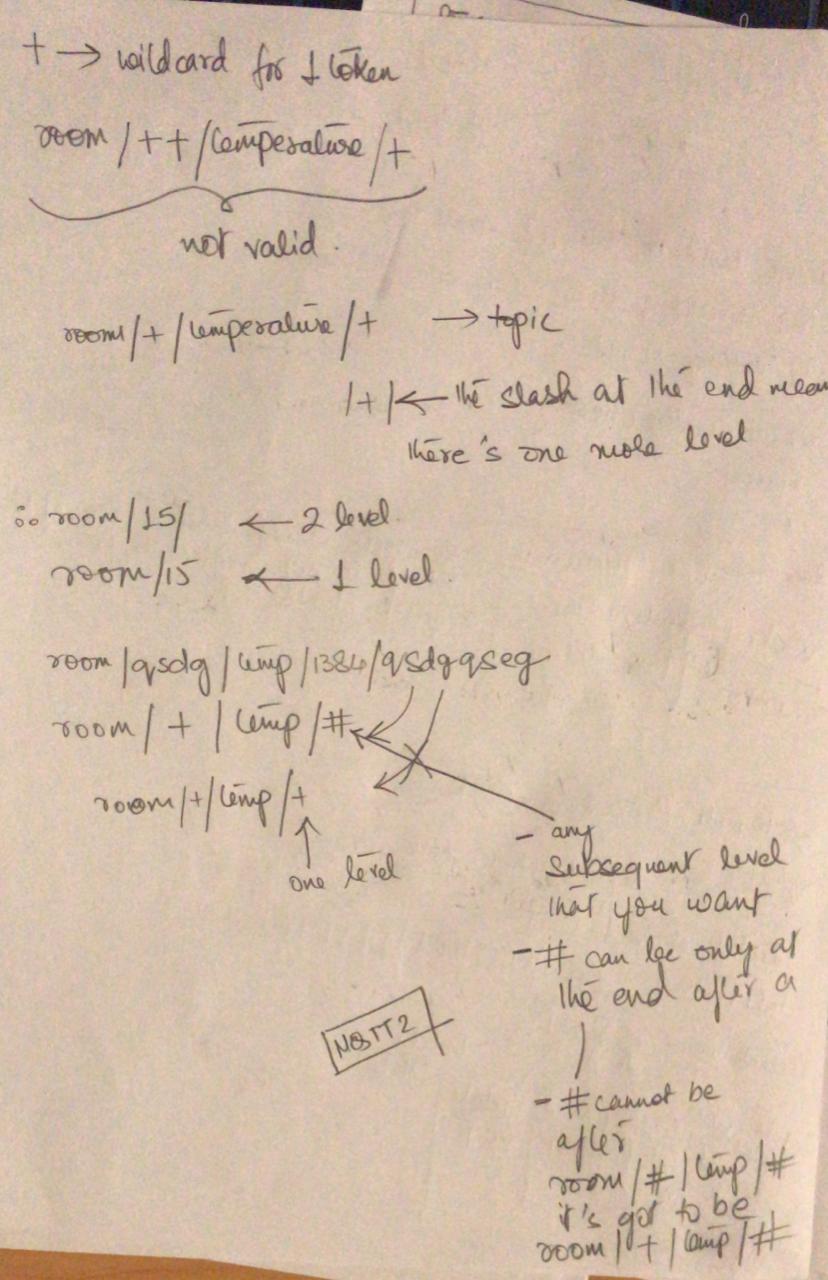 + → wildcard for 1 token
room / + + / temperature / +
not valid.
room / + / temperature / + → topic
/ + / ← the slash at the end mean
there's one more level
∴ room / 15 / ← 2 level.
room / 15 ← 1 level.
room / qsdg / temp / 1384 / qsdgqseg
room / + / temp / #
room / + / temp / +
one level
- any
subsequent level
that you want
- # can be only at
the end after a
/
MQTT2
- # cannot be
after
room / # / temp / #
it's got to be
room / + / temp / #